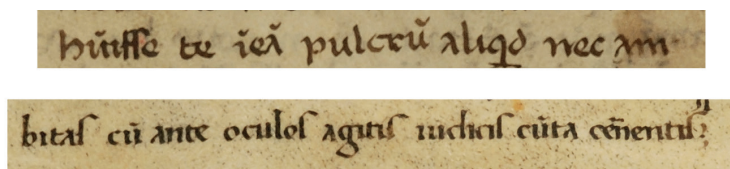 hūiſſe te īeā pulcrū aliqd nec am
bitaſ cū ante oculoſ agitiſ iudiciſ cūta cen̄entiſ